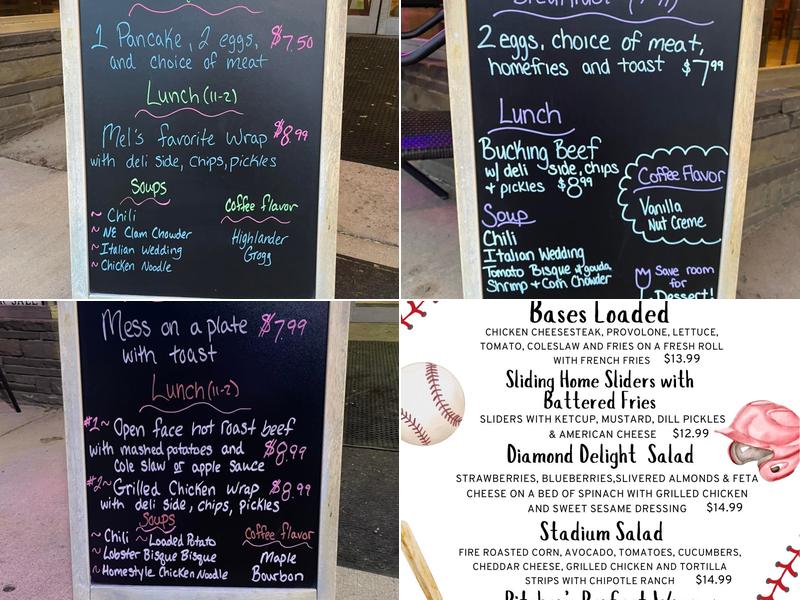 1 Pancake, 2 eggs, $7.50
and choice of meat
Lunch (11-2)
Mel's favorite wrap $8.99
with deli side, chips, pickles
Soups
~ Chili
~ NE Clam Chowder
~ Italian Wedding
~ Chicken Noodle
Coffee flavor
Highlander
Grogg
2 eggs, choice of meat,
homefries and toast $7.99
Lunch
Bucking Beef
w/ deli side, chips
+ pickles $8.99
Soup
Chili
Italian Wedding
Tomato Bisque w/gouda
Shrimp & Corn Chowder
Coffee Flavor
Vanilla
Nut Creme
Save room
for
Dessert!
Mess on a plate $7.99
with toast
Lunch (11-2)
#1~ Open face hot roast beef
with mashed potatoes and $8.99
cole slaw or apple sauce
#2~ Grilled Chicken wrap $8.99
with deli side, chips, pickles
Soups
~ Chili ~ Loaded Potato
~ Lobster Bisque Bisque
~ Homestyle Chicken Noodle
Coffee flavor
Maple
Bourbon
Bases Loaded
CHICKEN CHEESESTEAK, PROVOLONE, LETTUCE,
TOMATO, COLESLAW AND FRIES ON A FRESH ROLL
WITH FRENCH FRIES $13.99
Sliding Home Sliders with
Battered Fries
SLIDERS WITH KETCUP, MUSTARD, DILL PICKLES
& AMERICAN CHEESE $12.99
Diamond Delight Salad
STRAWBERRIES, BLUEBERRIES,SLIVERED ALMONDS & FETA
CHEESE ON A BED OF SPINACH WITH GRILLED CHICKEN
AND SWEET SESAME DRESSING $14.99
Stadium Salad
FIRE ROASTED CORN, AVOCADO, TOMATOES, CUCUMBERS,
CHEDDAR CHEESE, GRILLED CHICKEN AND TORTILLA
STRIPS WITH CHIPOTLE RANCH $14.99